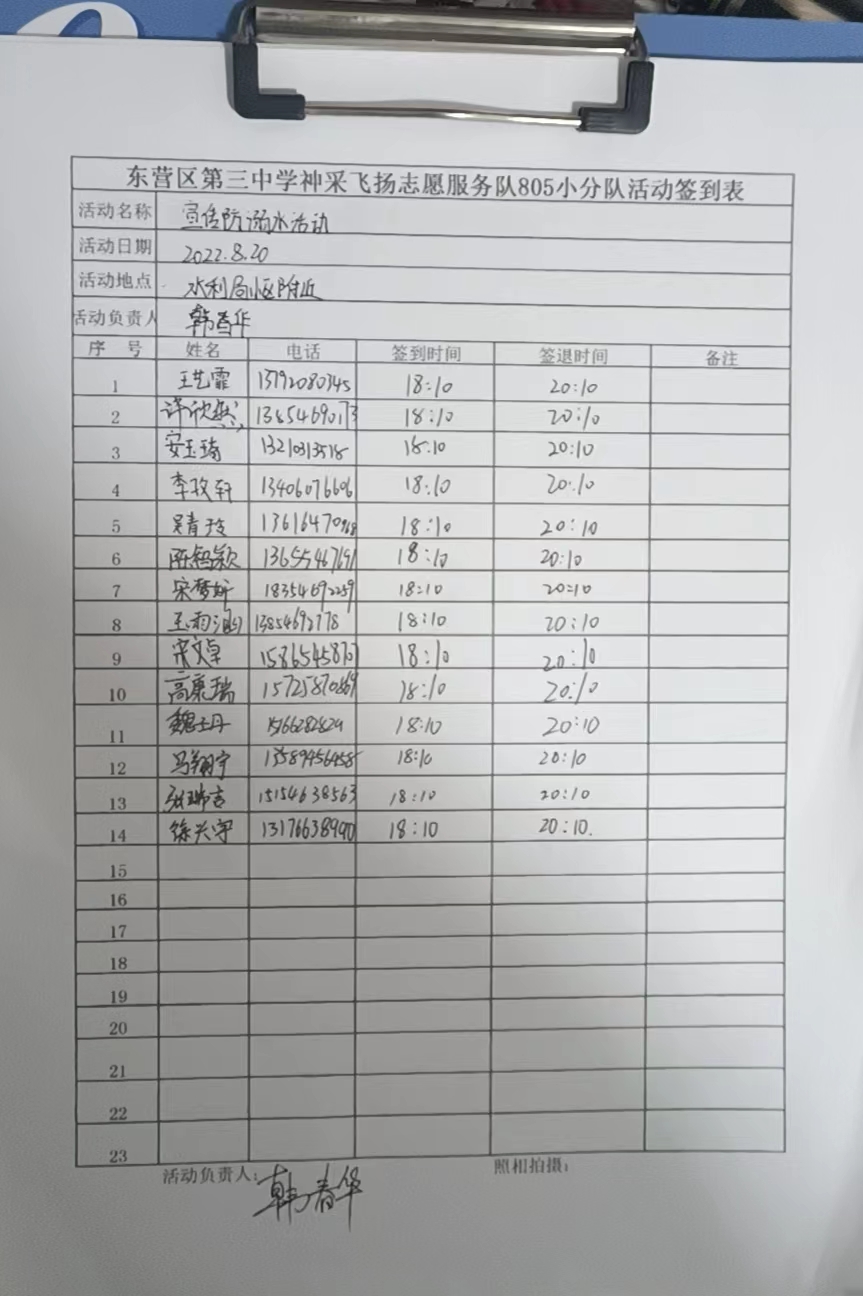 东营区第三中学神采飞扬志愿服务队805小分队活动签到表
活动名称 宣传防溺水活动
活动日期 2022.8.20
活动地点 水利局小区附近
活动负责人 韩春华
序号 姓名 电话 签到时间 签退时间 备注
1 王艺霏 13792080345 18:10 20:10
2 许欣然 13854690173 18:10 20:10
3 安玉琦 13210313518 18:10 20:10
4 李玫轩 13406076606 18:10 20:10
5 吴青玲 13616470968 18:10 20:10
6 陈锦颖 13655467691 18:10 20:10
7 宋梦妍 18354692259 18:10 20:10
8 王雨涵 13854692778 18:10 20:10
9 宋文卓 15865458707 18:10 20:10
10 高康瑞 15725870869 18:10 20:10
11 魏士丹 18:10 20:10
12 冯翔宇 13589456458 18:10 20:10
13 张瑞吉 15154638563 18:10 20:10
14 徐兴宇 13176638990 18:10 20:10.
15
16
17
18
19
20
21
22
23
活动负责人: 韩春华 照相拍摄: